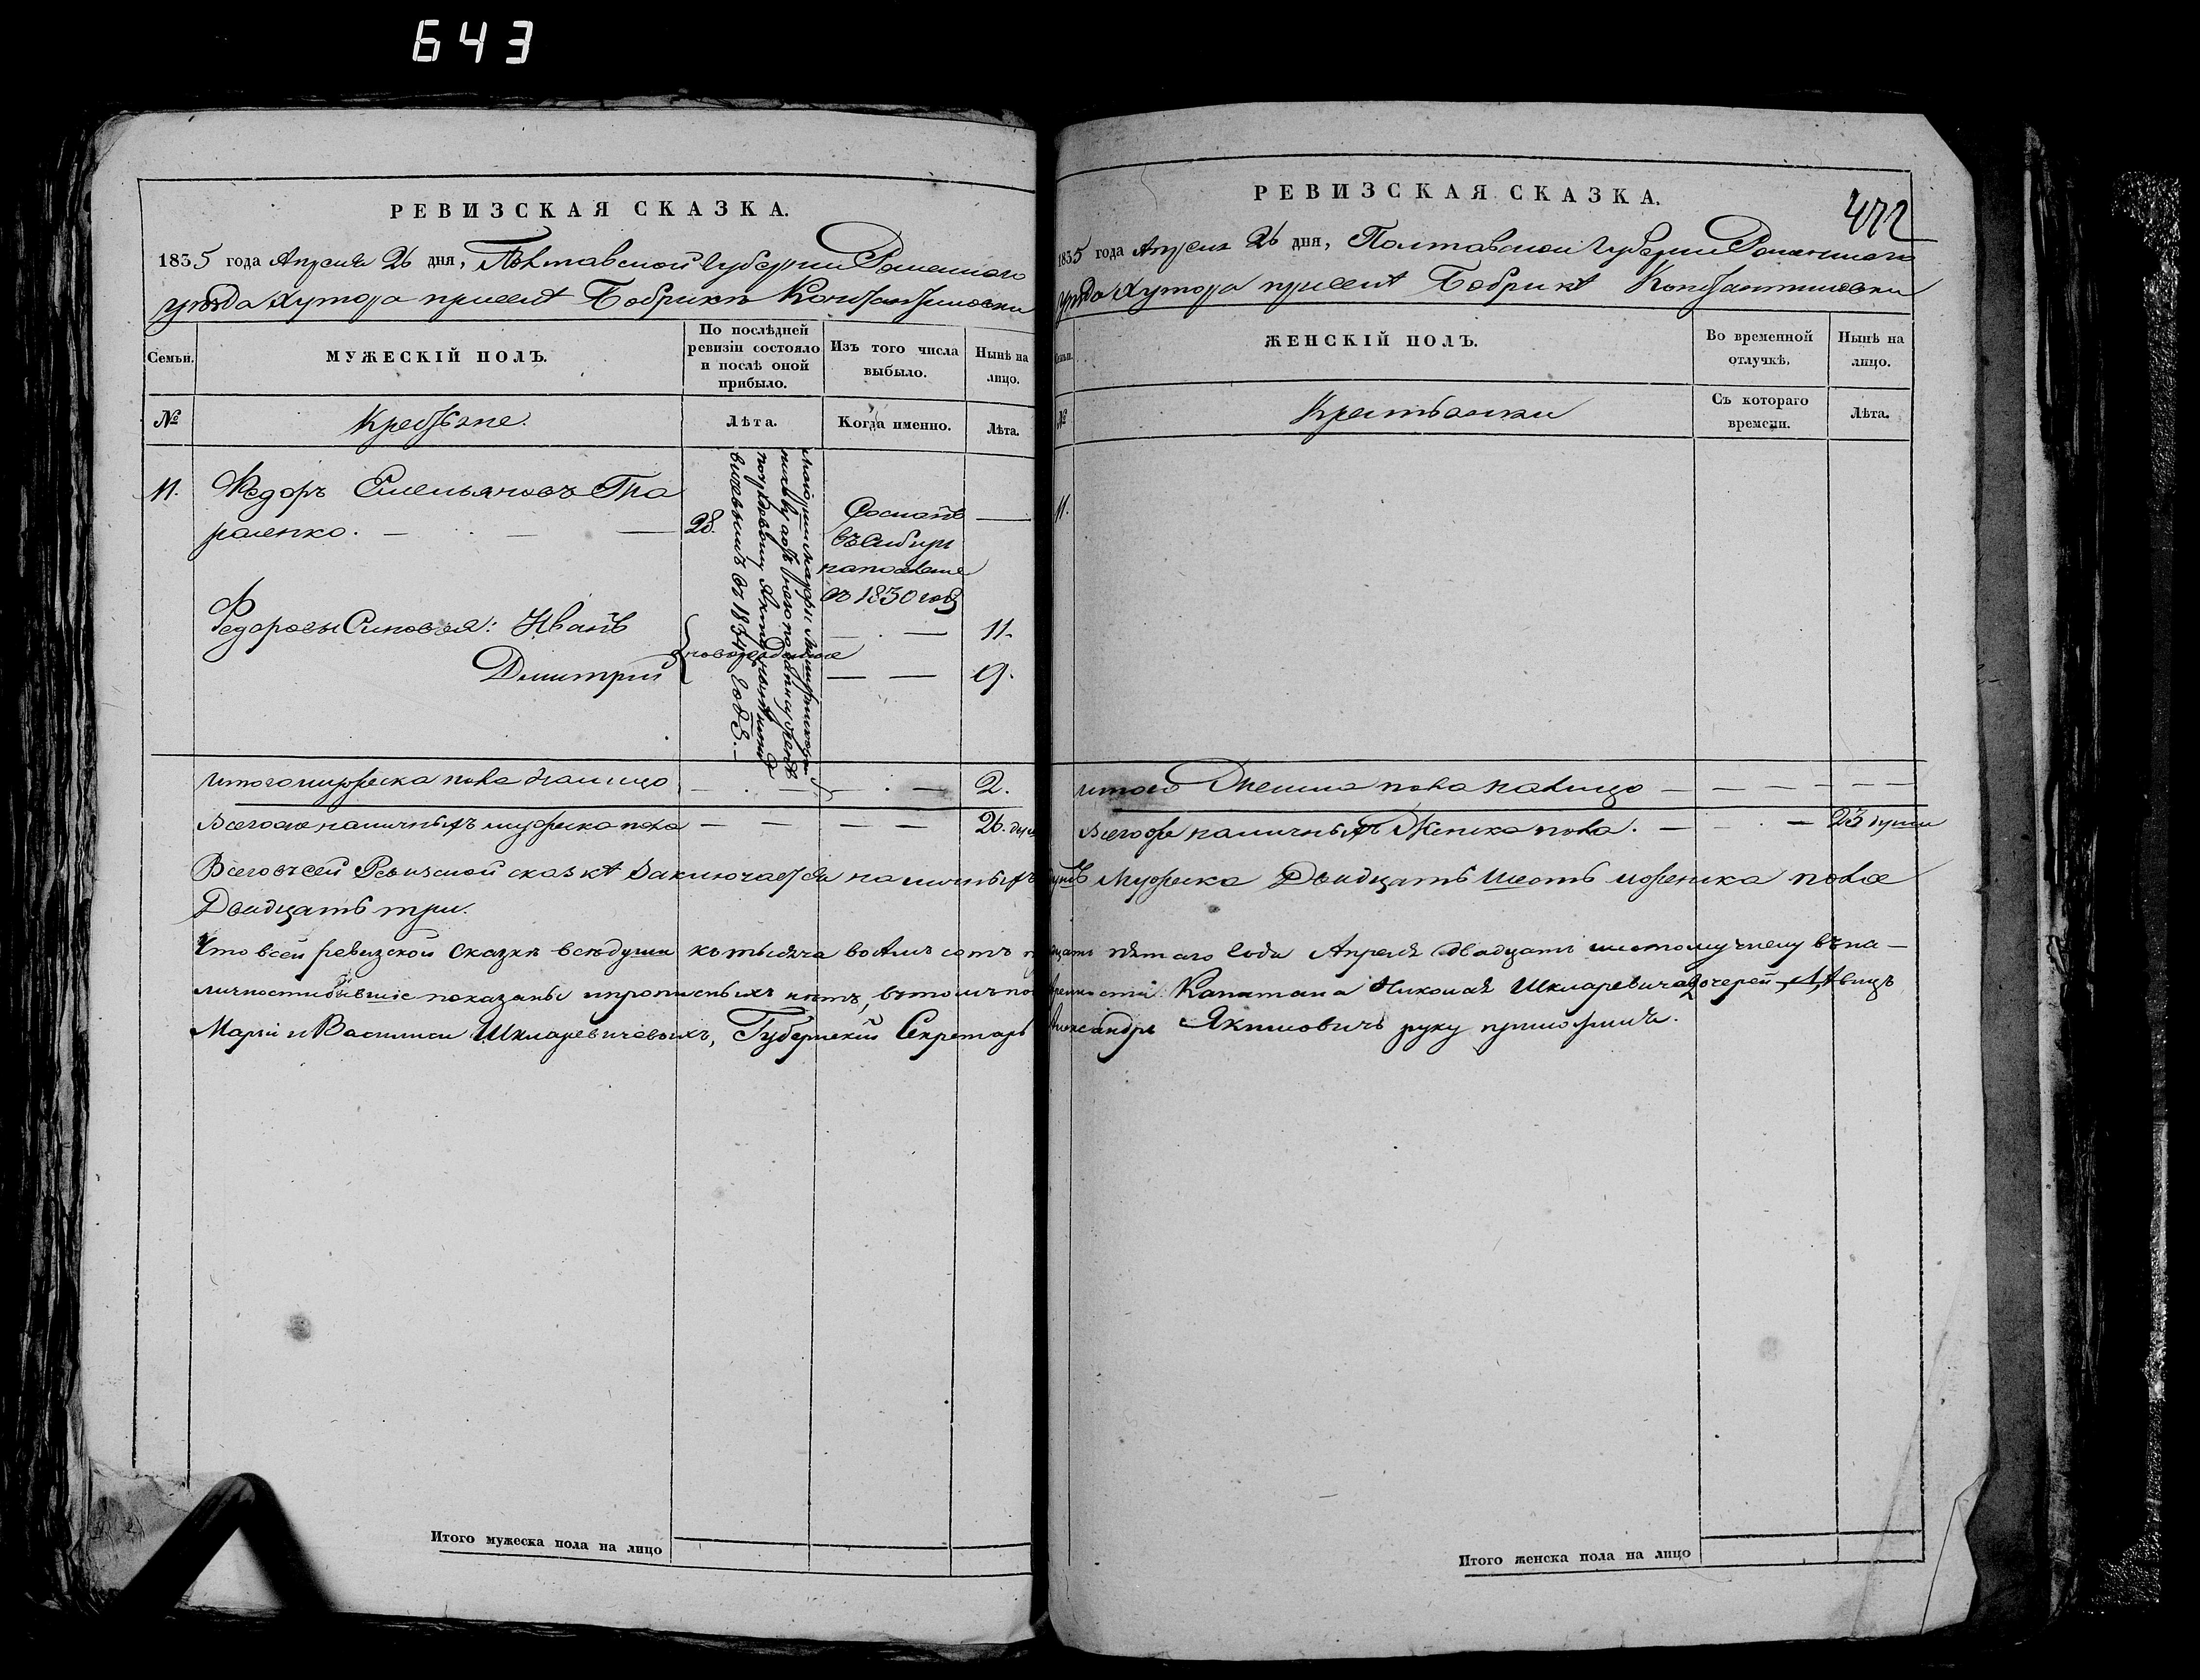 643
РЕВИЗСКАЯ СКАЗКА.
1835 года Апреля 26 дня, Полтавской Губернии Роменского
уезда Хутора при селе Бобрике Константиновки
Семьи.
МУЖЕСКІЙ ПОЛЪ.
По послѣдней
ревизіи состояло
и послѣ оной
прибыло.
Изъ того числа
выбыло.
Нынѣ на
лицо.
№
Крестьяне.
Лѣта.
Когда именно.
Лѣта.
11.
Федоръ Емельяновъ Тка
раленко.
28.
Сосланъ
въ Сибирь
на поселение
въ 1830 году
Федоровы Сыновья: Иванъ
11.
новорожденные
Дмитрий
9.
вительницъ въ 1834 годѣ.
Итого мужеска пола на лицо
2.
Всего же наличныхъ мужеска пола
26. душ
Всего въ сей Ревизской сказкѣ заключается наличныхъ
Двадцать три.
Что в сей ревизской Сказкѣ всѣ души къ тысяча восемь сотъ
личности бывшіе показаны и прописныхъ нѣтъ, въ томъ по
Маріи и Василисы Шкляревичевыхъ, Губернскій Секретарь
РЕВИЗСКАЯ СКАЗКА.
472
1835 года Апреля 26 дня, Полтавской Губернии Роменского
уезда Хутора при селе Бобрике Константиновки
ЖЕНСКІЙ ПОЛЪ.
Во временной
отлучкѣ.
Нынѣ на
лицо.
№
Крестьянки
Съ котораго
времени.
Лѣта.
11.
Итого Женска пола налицо
Всего же наличныхъ Женска пола.
23 души
душъ Мужеска Двадцать шесть и женска пола
дцать пятаго года Апреля двадцать шестому числу въ на-
вѣренности Капитана Николая Шкляревича дочерей, Дѣвицъ
Александръ Якимовичъ руку приложилъ.
Итого мужеска пола на лицо
Итого женска пола на лицо